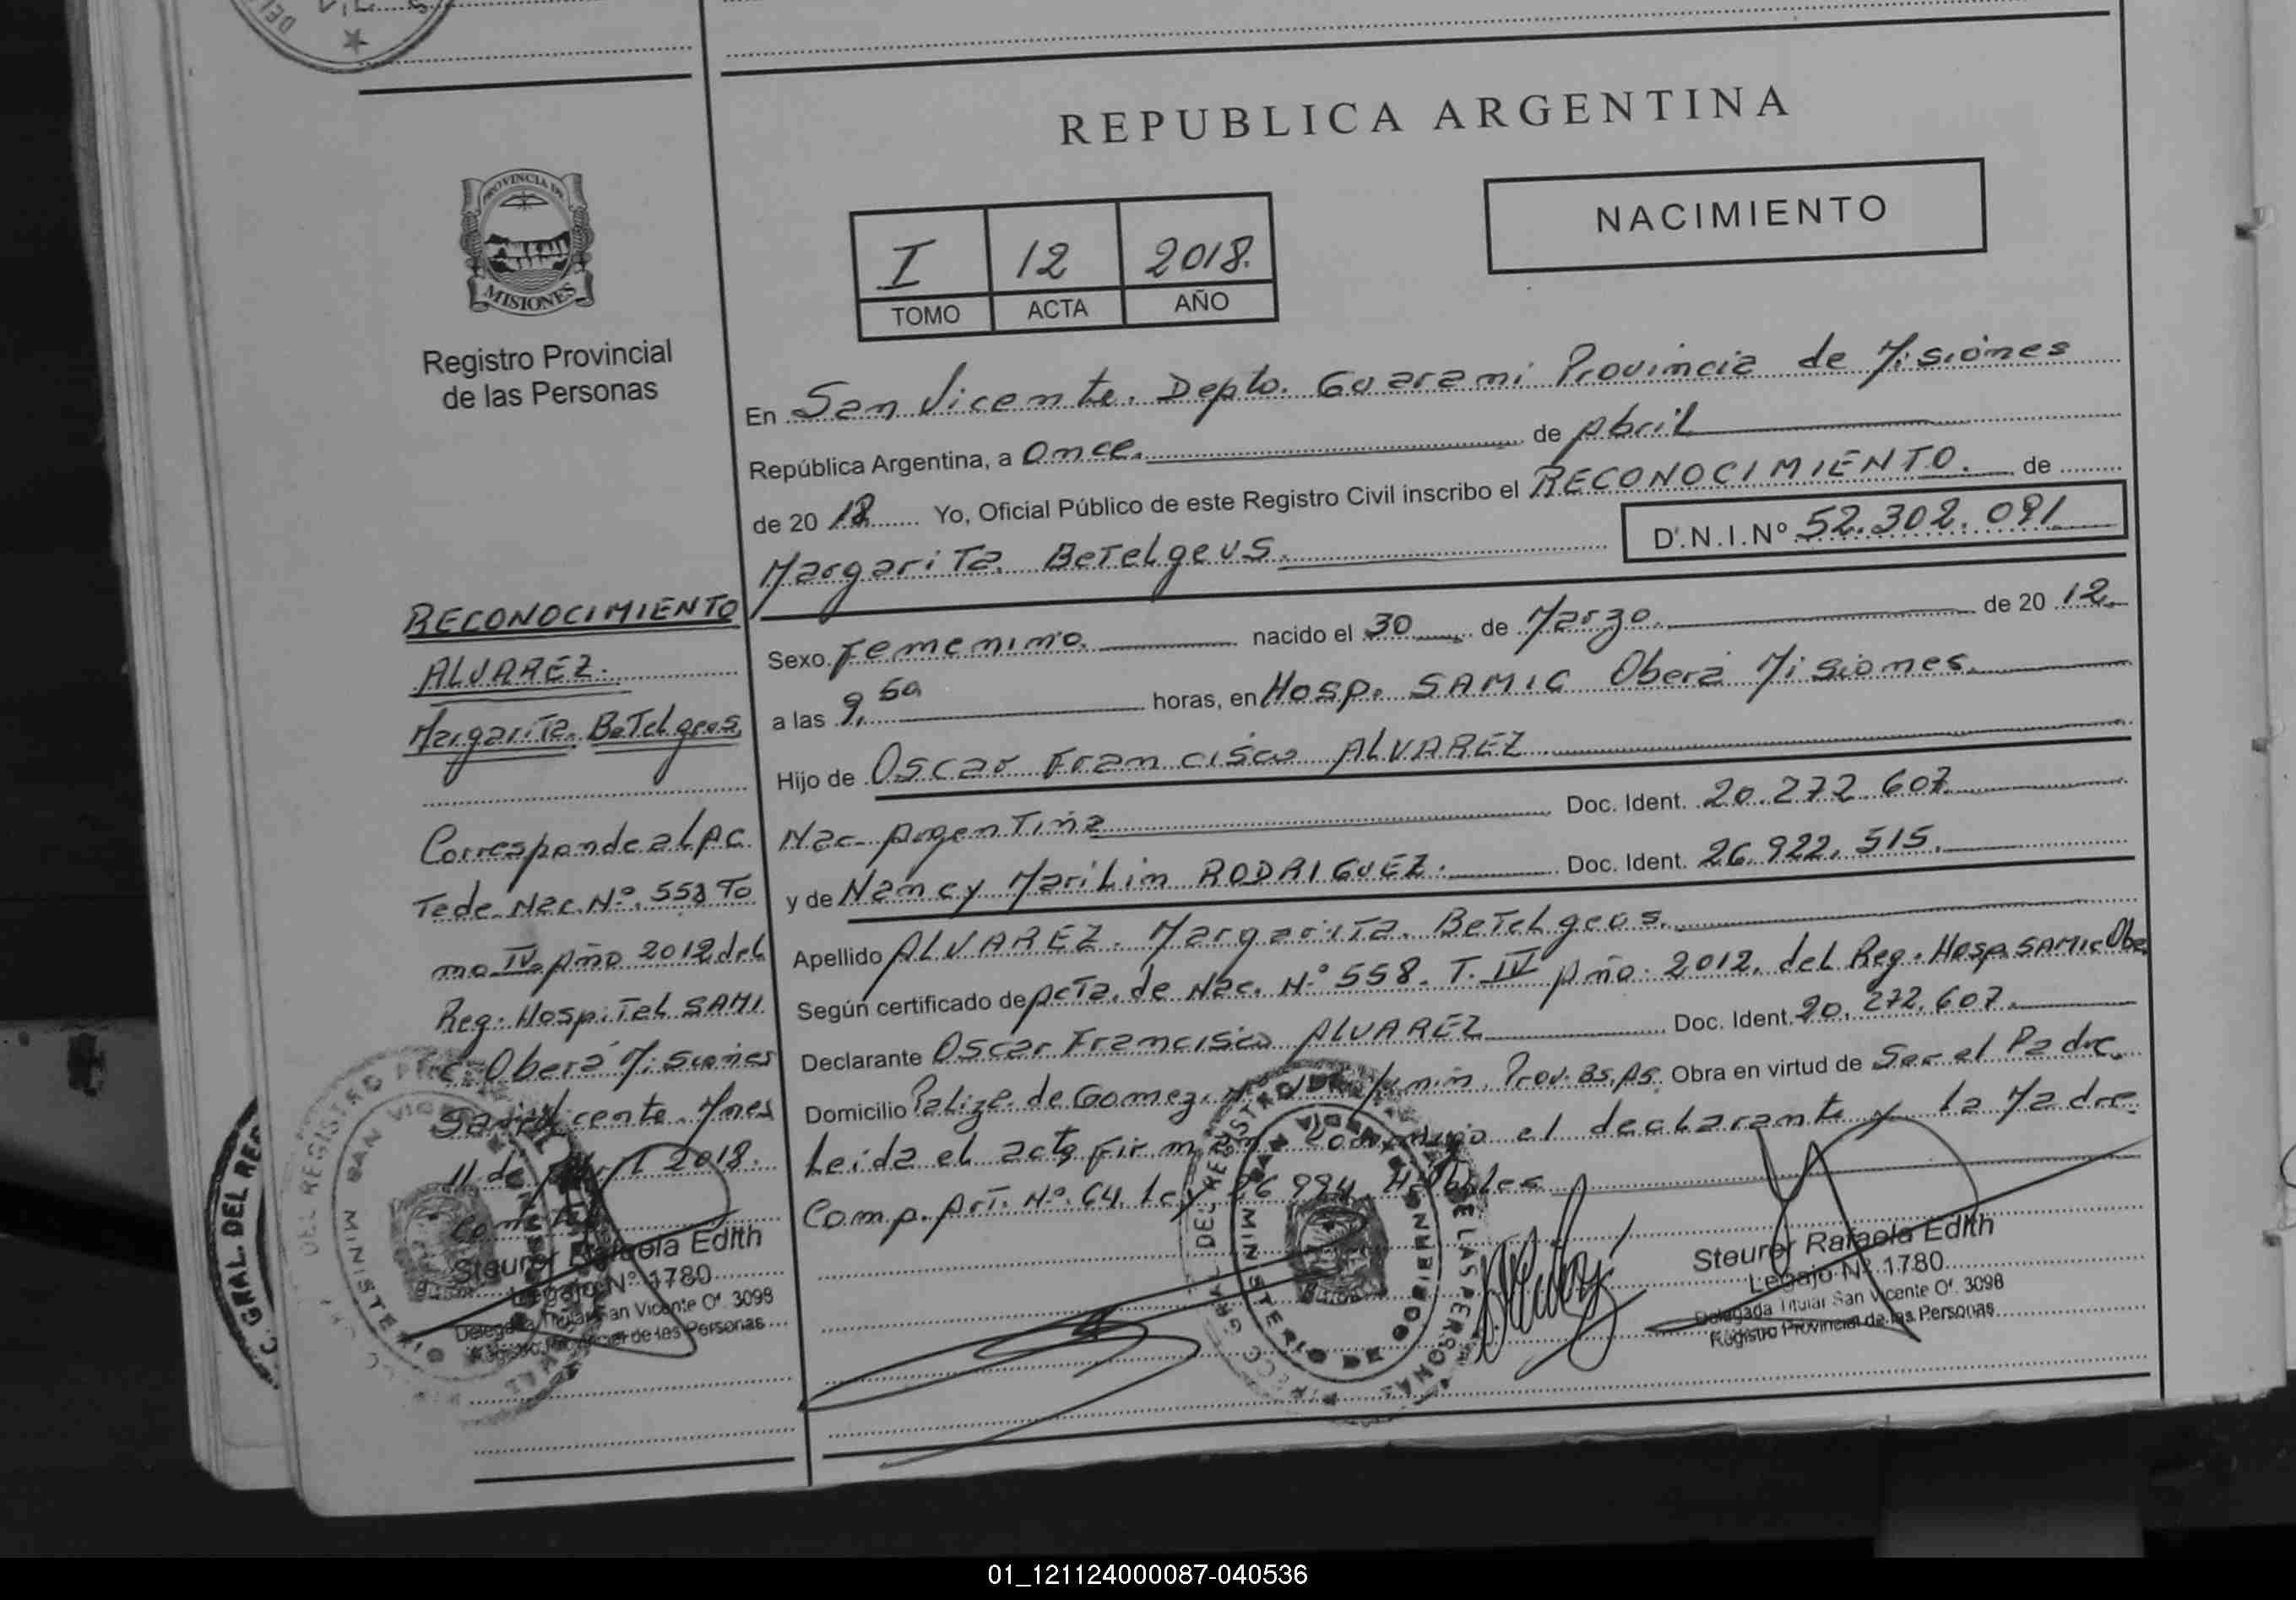 REPUBLICA ARGENTINA
PROVINCIA DE
MISIONES
Registro Provincial
de las Personas
I 12 2018.
TOMO ACTA AÑO
NACIMIENTO
En San Vicente. Depto. Guarani Provincia de Misiones
República Argentina, a Once. de Abril
de 20 18 Yo, Oficial Público de este Registro Civil inscribo el RECONOCIMIENTO. de
Margarita. Betelgeus. D.N.I.Nº 52.302.091
Sexo Femenino. nacido el 30 de Marzo. de 20 12.
a las 9, horas, en Hosp. SAMIC Oberá Misiones.
Hijo de Oscar Francisco ALVAREZ
Nac- Argentina Doc. Ident. 20.272 607
y de Nancy Marilin RODRIGUEZ. Doc. Ident. 26.922.515.
Apellido ALVAREZ. Margarita. Betelgeus.
Según certificado de Acta. de Nac. Nº 558. T. IV Año. 2012. del Reg. Hosp. SAMIC Obe
Declarante Oscar Francisco ALVAREZ Doc. Ident. 20.272.607.
Domicilio de Gomez. Junin. Prov. Bs. As. Obra en virtud de Ser el Padre.
Leida el acta Firman el declarante y la Madre.
Comp. Art. Nº. 64 Ley
RECONOCIMIENTO
ALVAREZ.
Margarita. Betelgeus.
Corresponde al Ac
Ta de Nac. Nº. 558 To
mo IV. Año 2012 del
Reg. Hospital SAMI
C Oberá Misiones
San Vicente. Mnes
11 de Abril 2018.
Steurer Rafaela Edith
Legajo Nº 1780
Delegada Titular San Vicente Of. 3098
Registro Provincial de las Personas
Steurer Rafaela Edith
Legajo Nº 1780
Delegada Titular San Vicente Of. 3098
Registro Provincial de las Personas
GRAL. DEL REG
01_121124000087-040536